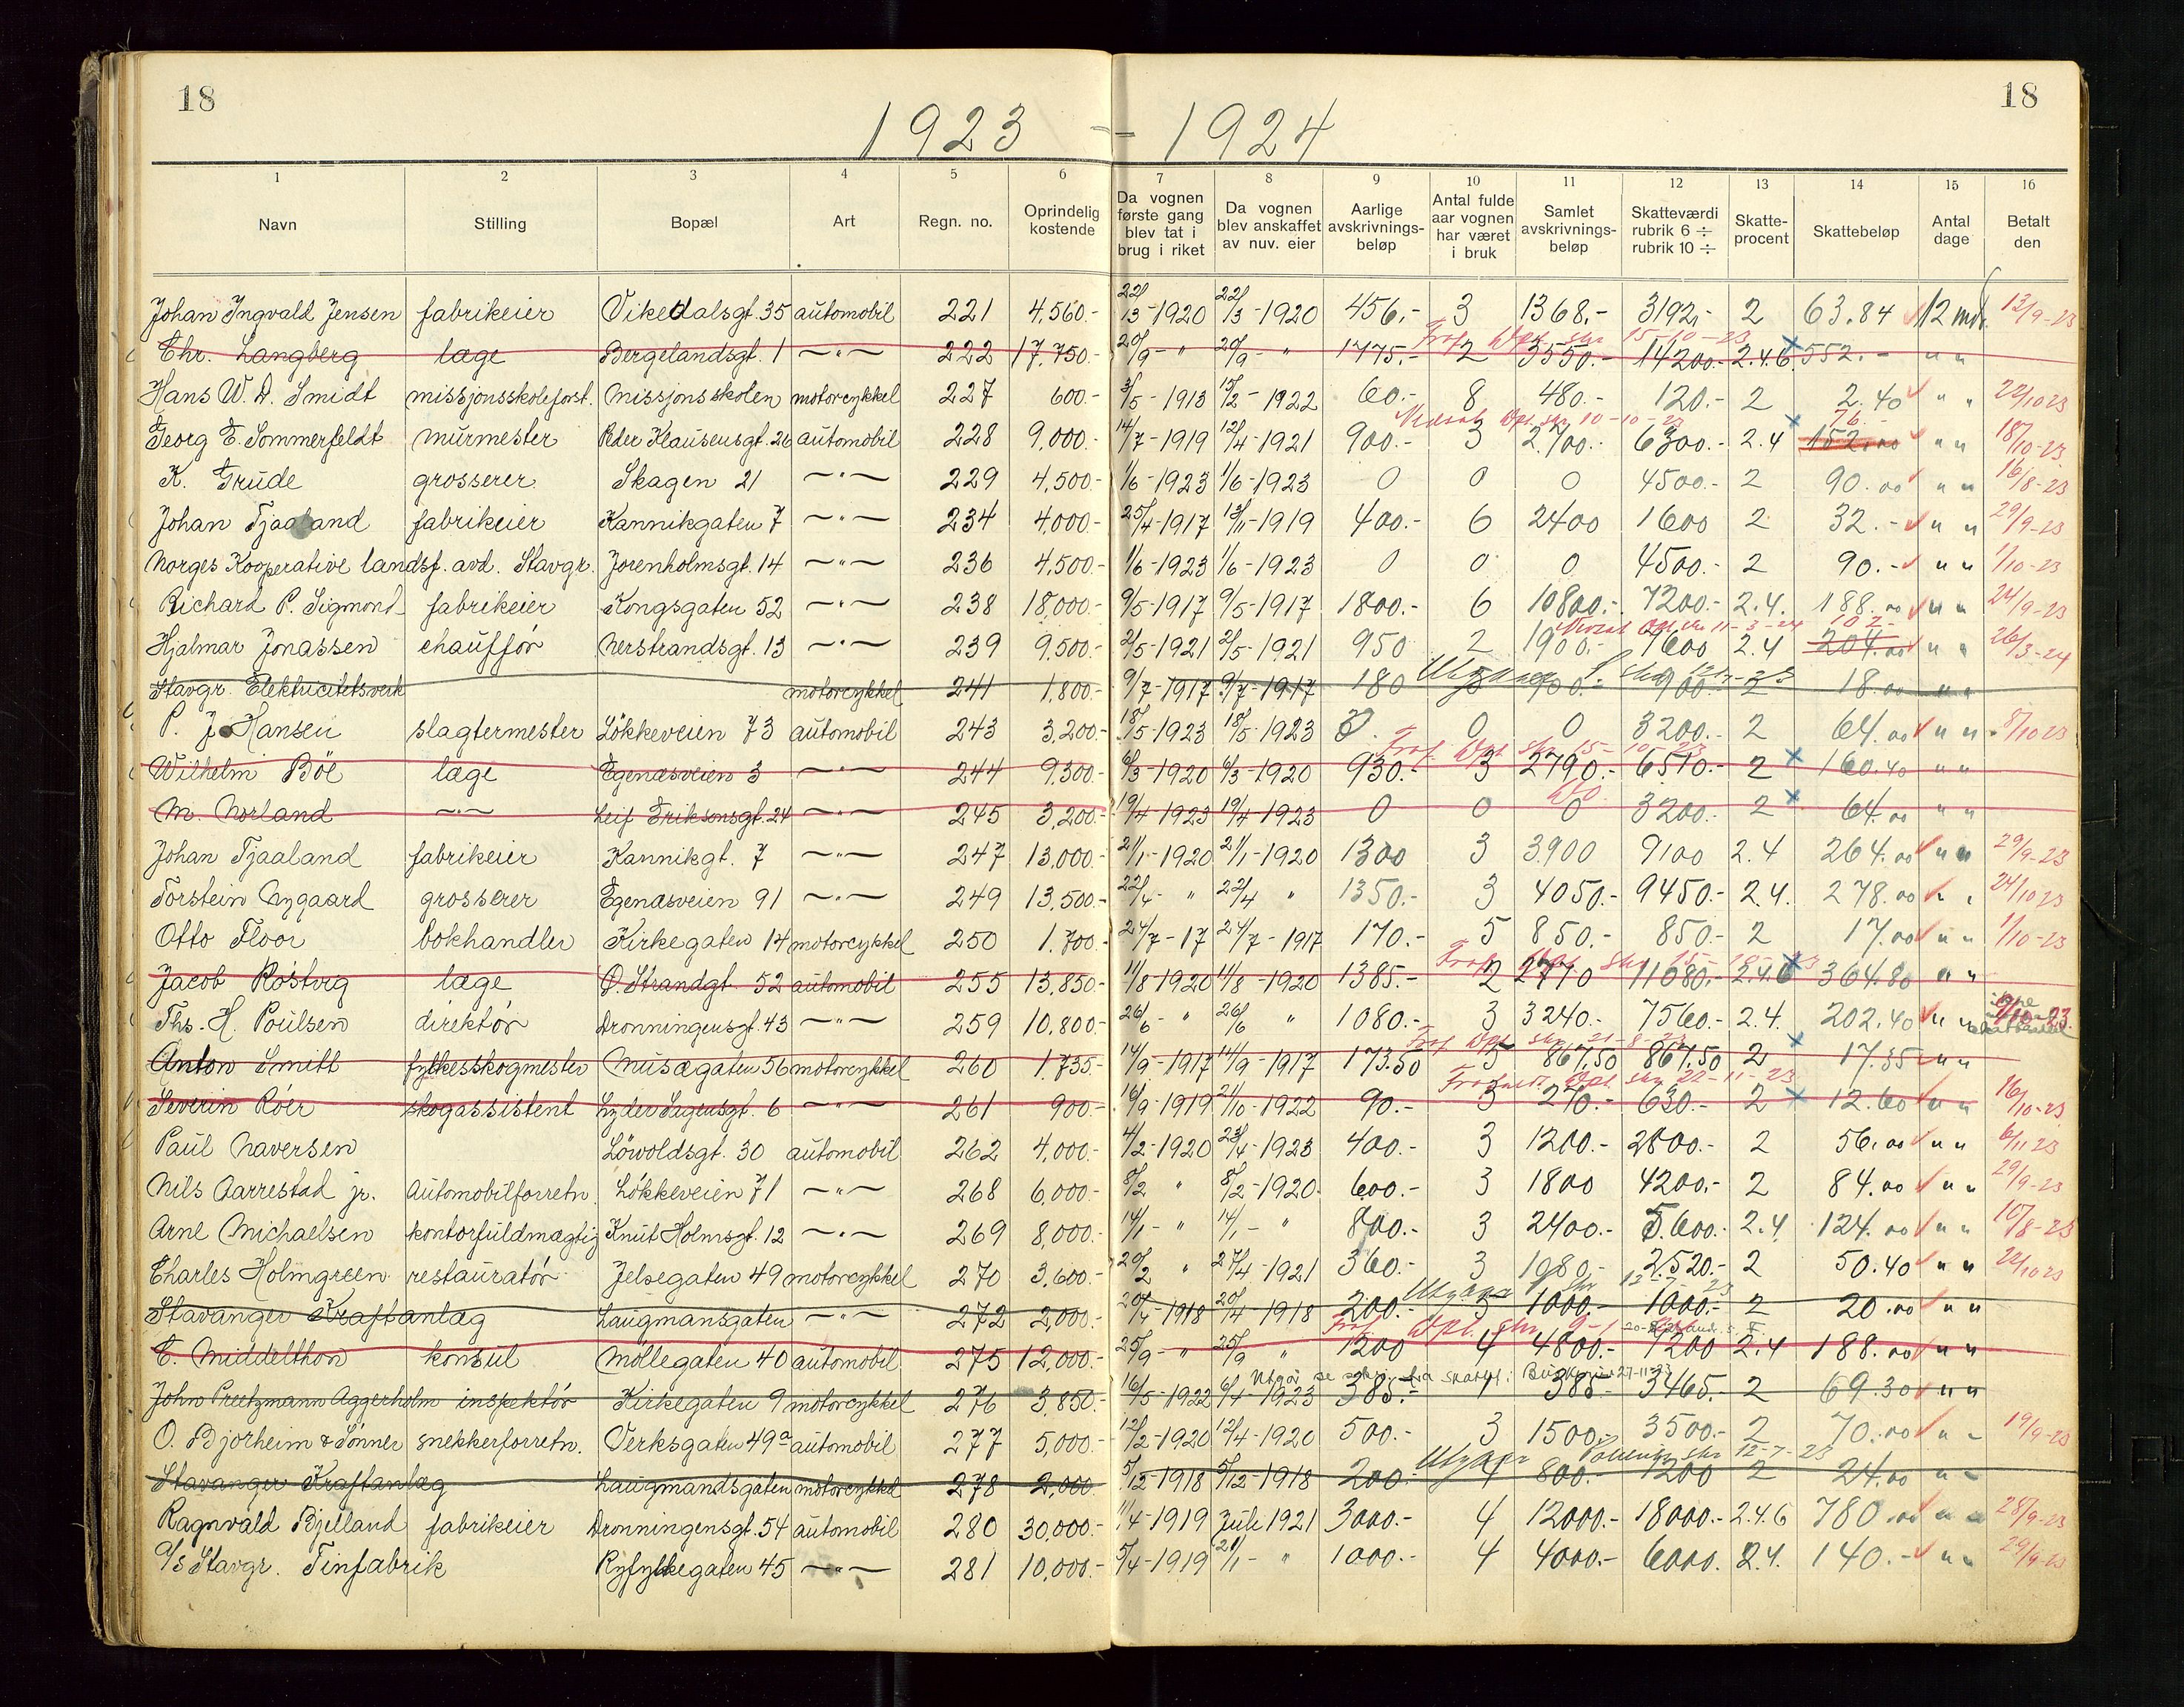 18
18
1923 - 1924
1 2 3 4 5 6 7 8 9 10 11 12 13 14 15 16
Navn Stilling Bopæl Art Regn. no. Oprindelig kostende Da vognen første gang blev tat i brug i riket Da vognen blev anskaffet av nuv. eier Aarlige avskrivnings-beløp Antal fulde aar vognen har været i bruk Samlet avskrivnings-beløp Skatteværdi rubrik 6 ÷ rubrik 10 ÷ Skatte-procent Skattebeløp Antal dage Betalt den
Johan Ingvald Jensen fabrikeier Vikedalsgt. 35 automobil 221 4,560.- 22/3-1920 22/3-1920 456.- 3 1368.- 3192.- 2 63.84 12 mdr. 13/9-23
Frit Dpt. skr 15-10-23
Chr. Langberg læge Bergelandsgt. 1 -"- 222 17,750.- 20/9-" 20/9-" 1775.- 2 3550.- 14200.- 2.4.6 552.- " "
Hans W. D. Smidt missjonsskoleforst. Missjonsskolen motorcykkel 227 600.- 3/5-1913 15/2-1922 60.- 8 480.- 120.- 2 2.40 " " 22/10 23
Nedsat Dpt. skr 10-10-23 76.-
Georg E. Sommerfeldt murmester Peder Klausensgt. 26 automobil 228 9,000.- 14/7-1919 12/4-1921 900.- 3 2700.- 6300.- 2.4 152.00 " " 18/10-23
K. Grude grosserer Skagen 21 -"- 229 4,500.- 1/6-1923 1/6-1923 0 0 0 4500.- 2 90.00 " " 16/8-23
Johan Tjaaland fabrikeier Kannikgaten 7 -"- 234 4,000.- 25/4-1917 13/11-1919 400.- 6 2400 1600 2 32.- " " 29/9-23
Norges Kooperative landsf. avd. Stavgr. Jorenholmsgt. 14 -"- 236 4,500.- 1/6-1923 1/6-1923 0 0 0 4500.- 2 90.- " " 1/10-23
Richard P. Sigmond fabrikeier Kongsgaten 52 -"- 238 18,000.- 9/5-1917 9/5-1917 1800.- 6 10800.- 7200.- 2.4. 188.00 " " 24/9-23
Nedsat Dpt. skr 11-3-24 102.-
Hjalmar Jonassen chauffør Nerstrandsgt. 13 -"- 239 9,500.- 2/5-1921 2/5-1921 950 2 1900.- 7600 2.4 204.00 " " 26/3-24
Utgaar P. skr 12-7-23
Stavgr. Elektricitetsverk motorcykkel 241 1,800.- 9/7-1917 9/7-1917 180 5 900.- 900.- 2 18.00 " "
P. J. Hansen slagtermester Løkkeveien 73 automobil 243 3,200.- 18/5-1923 18/5-1923 0. 0 0 3200.- 2 64.00 " " 8/10 23
Frit. Dpt. skr 15-10-23
Wilhelm Bøe læge Egenæsveien 3 -"- 244 9,300.- 6/3-1920 6/3-1920 930.- 3 2790.- 6510.- 2 160.40 " "
Do.
M. Norland -"- Leif Eriksonsgt. 24 -"- 245 3,200.- 19/4-1923 19/4-1923 0 0 0 3200.- 2 64.00 " "
Johan Tjaaland fabrikeier Kannikgt. 7 -"- 247 13,000.- 21/1-1920 21/1-1920 1300 3 3.900 9100 2.4 264.00 " " 29/9-23
Torstein Nygaard grosserer Egenæsveien 91 -"- 249 13,500.- 22/4-" 22/4 " 1350.- 3 4050.- 9450.- 2.4. 278.00 " " 24/10 23
Otto Floor bokhandler Kirkegaten 14 motorcykkel 250 1.700.- 24/7-17 24/7-1917 170.- 5 850.- 850.- 2 17.00 " " 1/10-23
Frit Dpt. skr 15-10-23
Jacob Røstvig læge Ø. Strandgt. 52 automobil 255 13,850.- 11/8 1920 11/8-1920 1385.- 2 2770 11080.- 2.4.6 364.80 " "
Ths. H. Poulsen direktør Dronningensgt. 43 -"- 259 10,800.- 26/6-" 26/6 " 1080.- 3 3240.- 7560.- 2.4. 202.40 " "
Frit Dpt. skr 21-8-23
Anton Smitt fylkesskogmester Musægaten 56 motorcykkel 260 1.735.- 14/9-1917 14/9-1917 173.50 5 867,50 867,50 2 17.35 " "
Dpt. skr 22-11-23
Severin Röer skogassistent Lyder Sagensgt. 6 -"- 261 900.- 16/9-1919 21/10-1922 90.- 3 270.- 630.- 2 12.60 " " 16/10-23
Paul Naversen Løwoldsgt. 30 automobil 262 4,000.- 4/2-1920 23/4-1923 400.- 3 1200.- 2800.- 2 56.00 " " 6/11 23
Nils Aarrestad jr. Automobilforretn. Løkkeveien 71 -"- 268 6,000.- 8/2 " 8/2-1920. 600.- 3 1800 4200.- 2 84.00 " " 29/9-23
Arne Michaelsen kontorfuldmægtig Knut Holmsgt. 12 -"- 269 8,000.- 14/1-" 14/1-" 800.- 3 2400.- 5.600.- 2.4. 124.00 " " 10/8-23
Charles Holmgreen restauratør Jelsegaten 49 motorcykkel 270 3,600.- 20/2 " 27/4-1921 360.- 3 1080.- 2.520.- 2 50.40 " " 22/10 23
Utgaar P. skr 12-7-23
Stavanger Kraftanlæg Laugmansgaten -"- 272 2,000.- 20/4-1918 20/4-1918 200.- 5 1000.- 1000.- 2 20.00 " "
Frit. Dpt. skr 9-1
E. Middelthon konsul Møllegaten 40 automobil 275 12,000.- 25/9-" 25/9 " 1200 4 4800.- 7200 2.4 188.00 " "
27-11-23
John Preetzmann Aggerholm inspektør Kirkegaten 9 motorcykkel 276 3,850.- 16/5-1922 6/4-1923 385.- 1 385.- 3465.- 2 69.30 " "
O. Bjorheim & Sønner snekkerforretn. Verksgaten 49a automobil 277 5,000.- 12/2-1920 12/4-1920 500.- 3 1500.- 3500.- 2 70.00 " - 19/9-23
Utgaar Politiets skr 12-7-23
Stavanger Kraftanlæg Laugmandsgaten motorcykkel 278 2,000. 5/12-1918 5/12-1918 200. 4 800.- 1200 2 24.00 " -
Ragnvald Bjelland fabrikeier Dronningensgt. 54 automobil 280 30,000.- 11/4-1919 Juli 1921 3000.- 4 12000.- 18000.- 2.4.6 780.00 " " 28/9-23
A/S Stavgr. Tinfabrik Ryfylkegaten 45 -"- 281 10,000.- 5/4-1919 21/1-" 1000.- 4 4000.- 6000. 2.4. 140.- " " 29/9-23